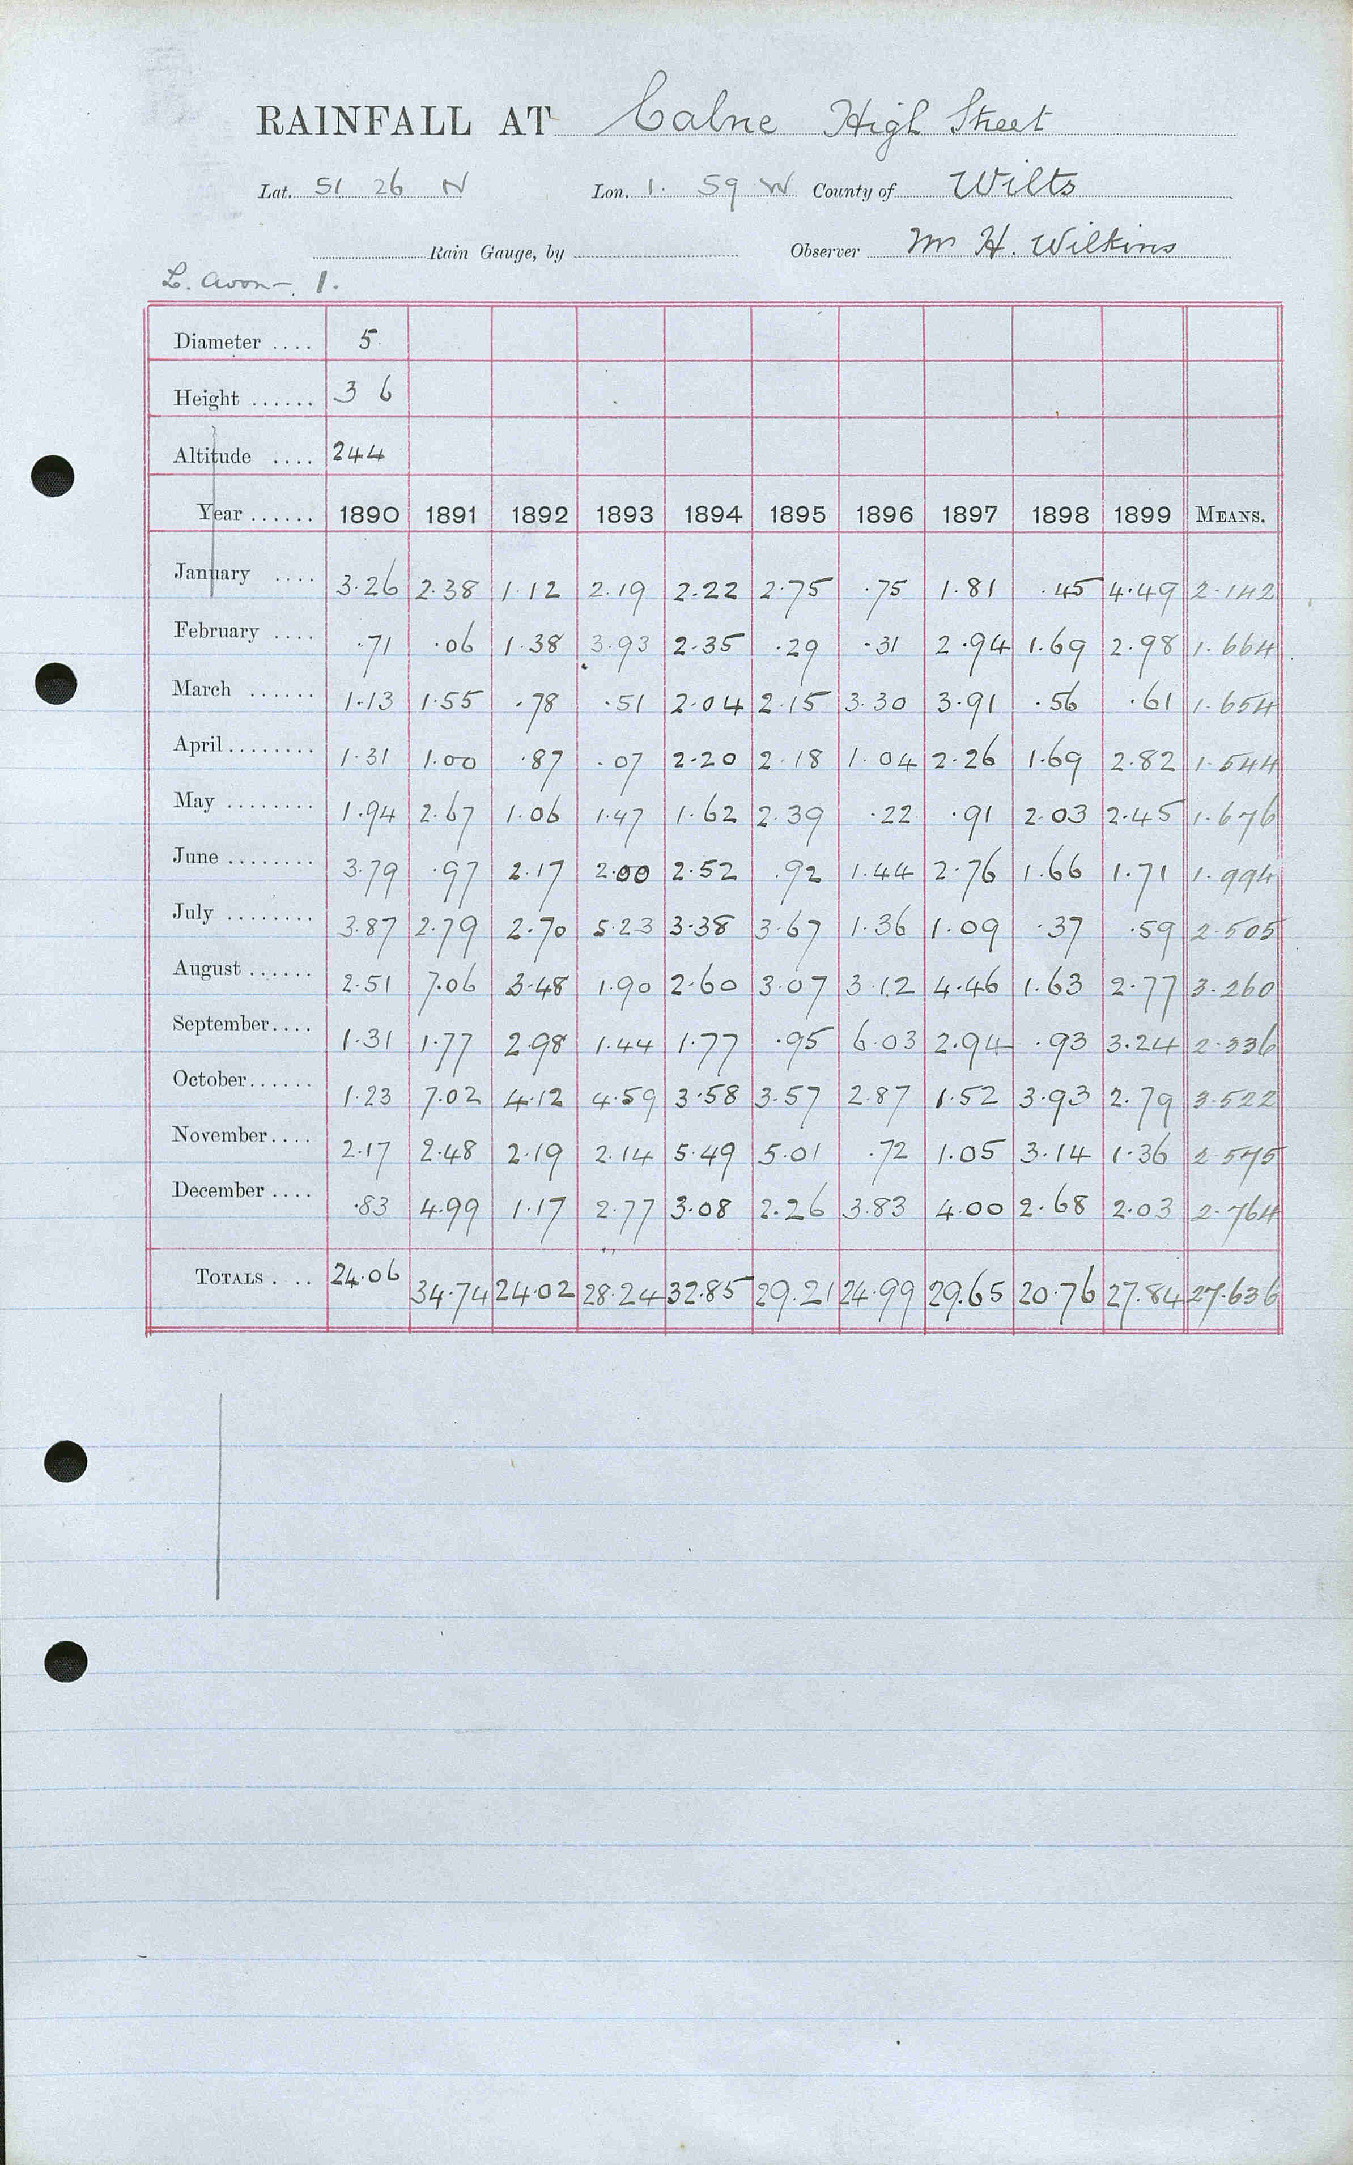 RAINFALL AT Calne High Street
Lat. 51 26 N Lon. 1. 59 W County of Wilts
Rain Gauge, by Observer Mr H. Wilkins
L. Avon - 1.
Diameter .... 5
Height ...... 3 6
Altitude .... 244
Year ...... 1890 1891 1892 1893 1894 1895 1896 1897 1898 1899 MEANS.
January .... 3.26 2.38 1.12 2.19 2.22 2.75 .75 1.81 .45 4.49 2.142
February .... .71 .06 1.38 3.93 2.35 .29 .31 2.94 1.69 2.98 1.664
March ...... 1.13 1.55 .78 .51 2.04 2.15 3.30 3.91 .56 .61 1.654
April ........ 1.31 1.00 .87 .07 2.20 2.18 1.04 2.26 1.69 2.82 1.544
May ........ 1.94 2.67 1.06 1.47 1.62 2.39 .22 .91 2.03 2.45 1.676
June ........ 3.79 .97 2.17 2.00 2.52 .92 1.44 2.76 1.66 1.71 1.994
July ........ 3.87 2.79 2.70 5.23 3.38 3.67 1.36 1.09 .37 .59 2.505
August ...... 2.51 7.06 3.48 1.90 2.60 3.07 3.12 4.46 1.63 2.77 3.260
September .... 1.31 1.77 2.98 1.44 1.77 .95 6.03 2.94 .93 3.24 2.336
October ...... 1.23 7.02 4.12 4.59 3.58 3.57 2.87 1.52 3.93 2.79 3.522
November .... 2.17 2.48 2.19 2.14 5.49 5.01 .72 1.05 3.14 1.36 2.575
December .... .83 4.99 1.17 2.77 3.08 2.26 3.83 4.00 2.68 2.03 2.764
TOTALS .... 24.06 34.74 24.02 28.24 32.85 29.21 24.99 29.65 20.76 27.84 27.636